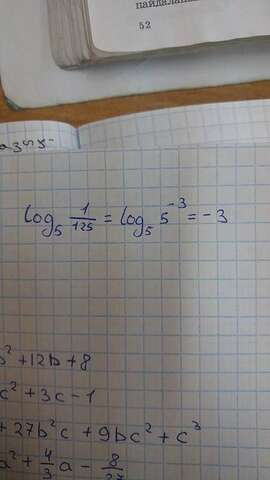 пайдалан
52
log₅ 1/125 = log₅ 5⁻³ = -3
b² + 12b + 8
c² + 3c - 1
+ 27b²c + 9bc² + c³
a² + 4/3 a - 8/27